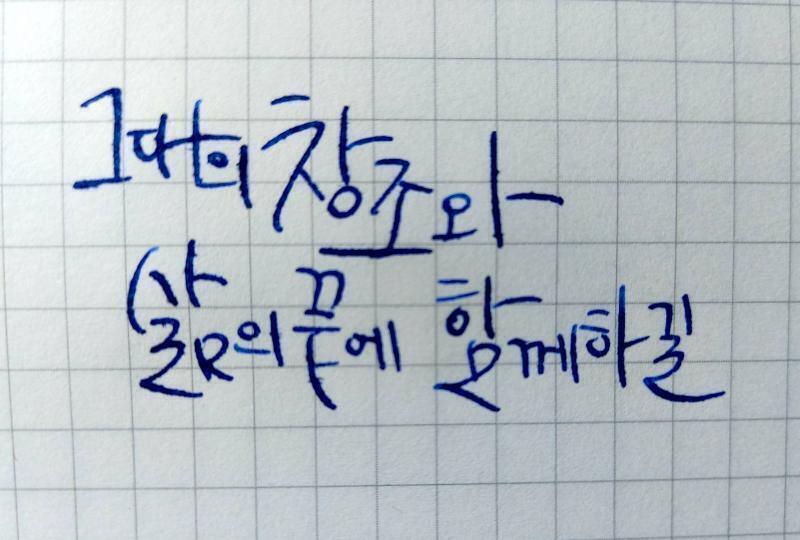 그대의 창조와
삶의 끝에 함께하길